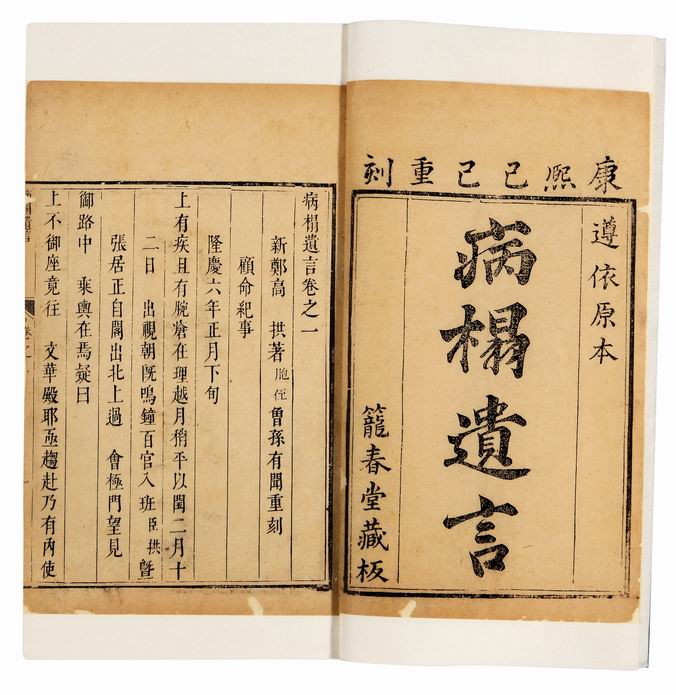 康熙己巳重刻
遵依原本
病榻遺言
籠春堂藏板
病榻遺言卷之一
新鄭高　拱著胞侄曾孫有聞重刻
顧命紀事
隆慶六年正月下旬
上有疾且有腕瘡在理越月稍平以閏二月十
二日　出視朝旣鳴鐘百官入班臣拱曁
張居正自閣出北上過　會極門望見
御路中　乘輿在焉疑曰
上不御座竟往　文華殿耶亟趨赴乃有內使
病榻遺言
卷之一